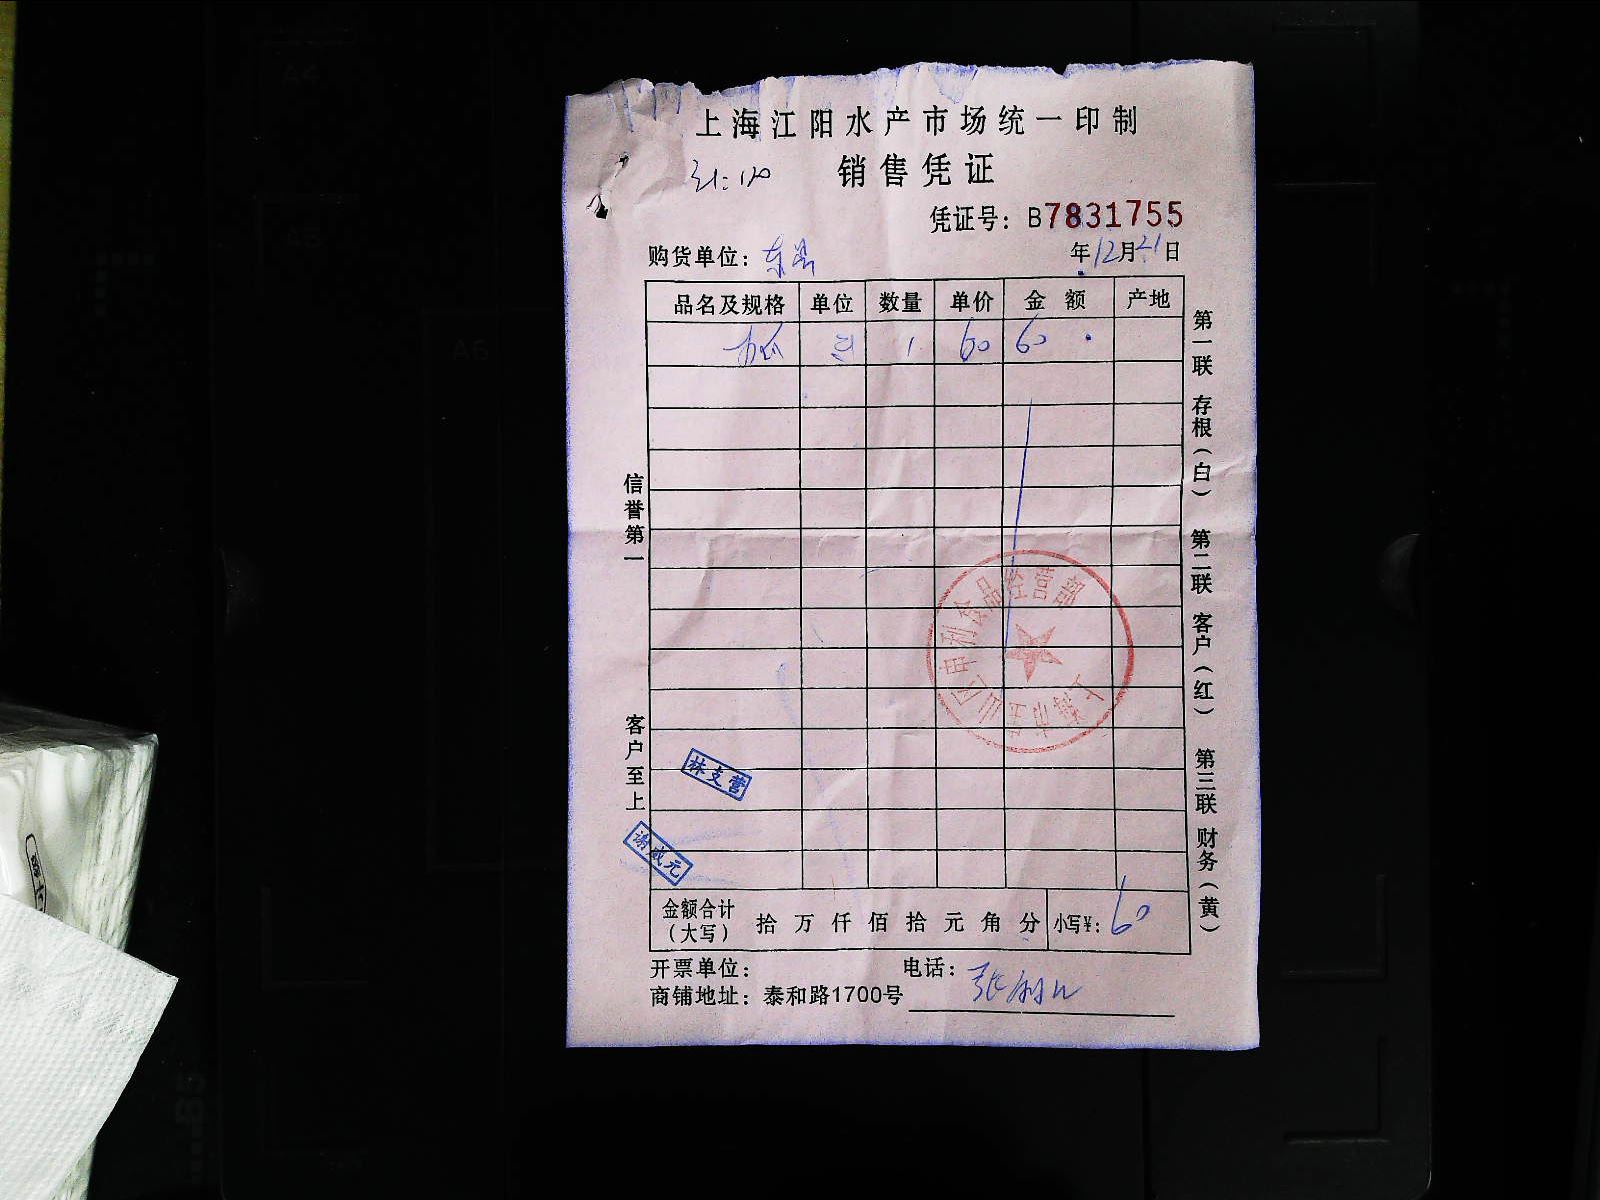 上海江阳水产市场统一印制
销售凭证
凭证号：B7831755
购货单位：
年12月21日
品名及规格 单位 数量 单价 金额 产地
1 60 60
信誉第一
客户至上
第一联 存根（白） 第二联 客户（红） 第三联 财务（黄）
上海市宝山区申利食品经营部
林支营
谢成元
金额合计（大写） 拾 万 仟 佰 拾 元 角 分 小写¥：60
开票单位： 电话：
商铺地址：泰和路1700号
A4
A5
A6